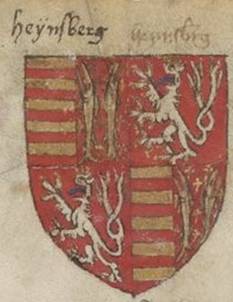 heÿnsberg heinsbrg